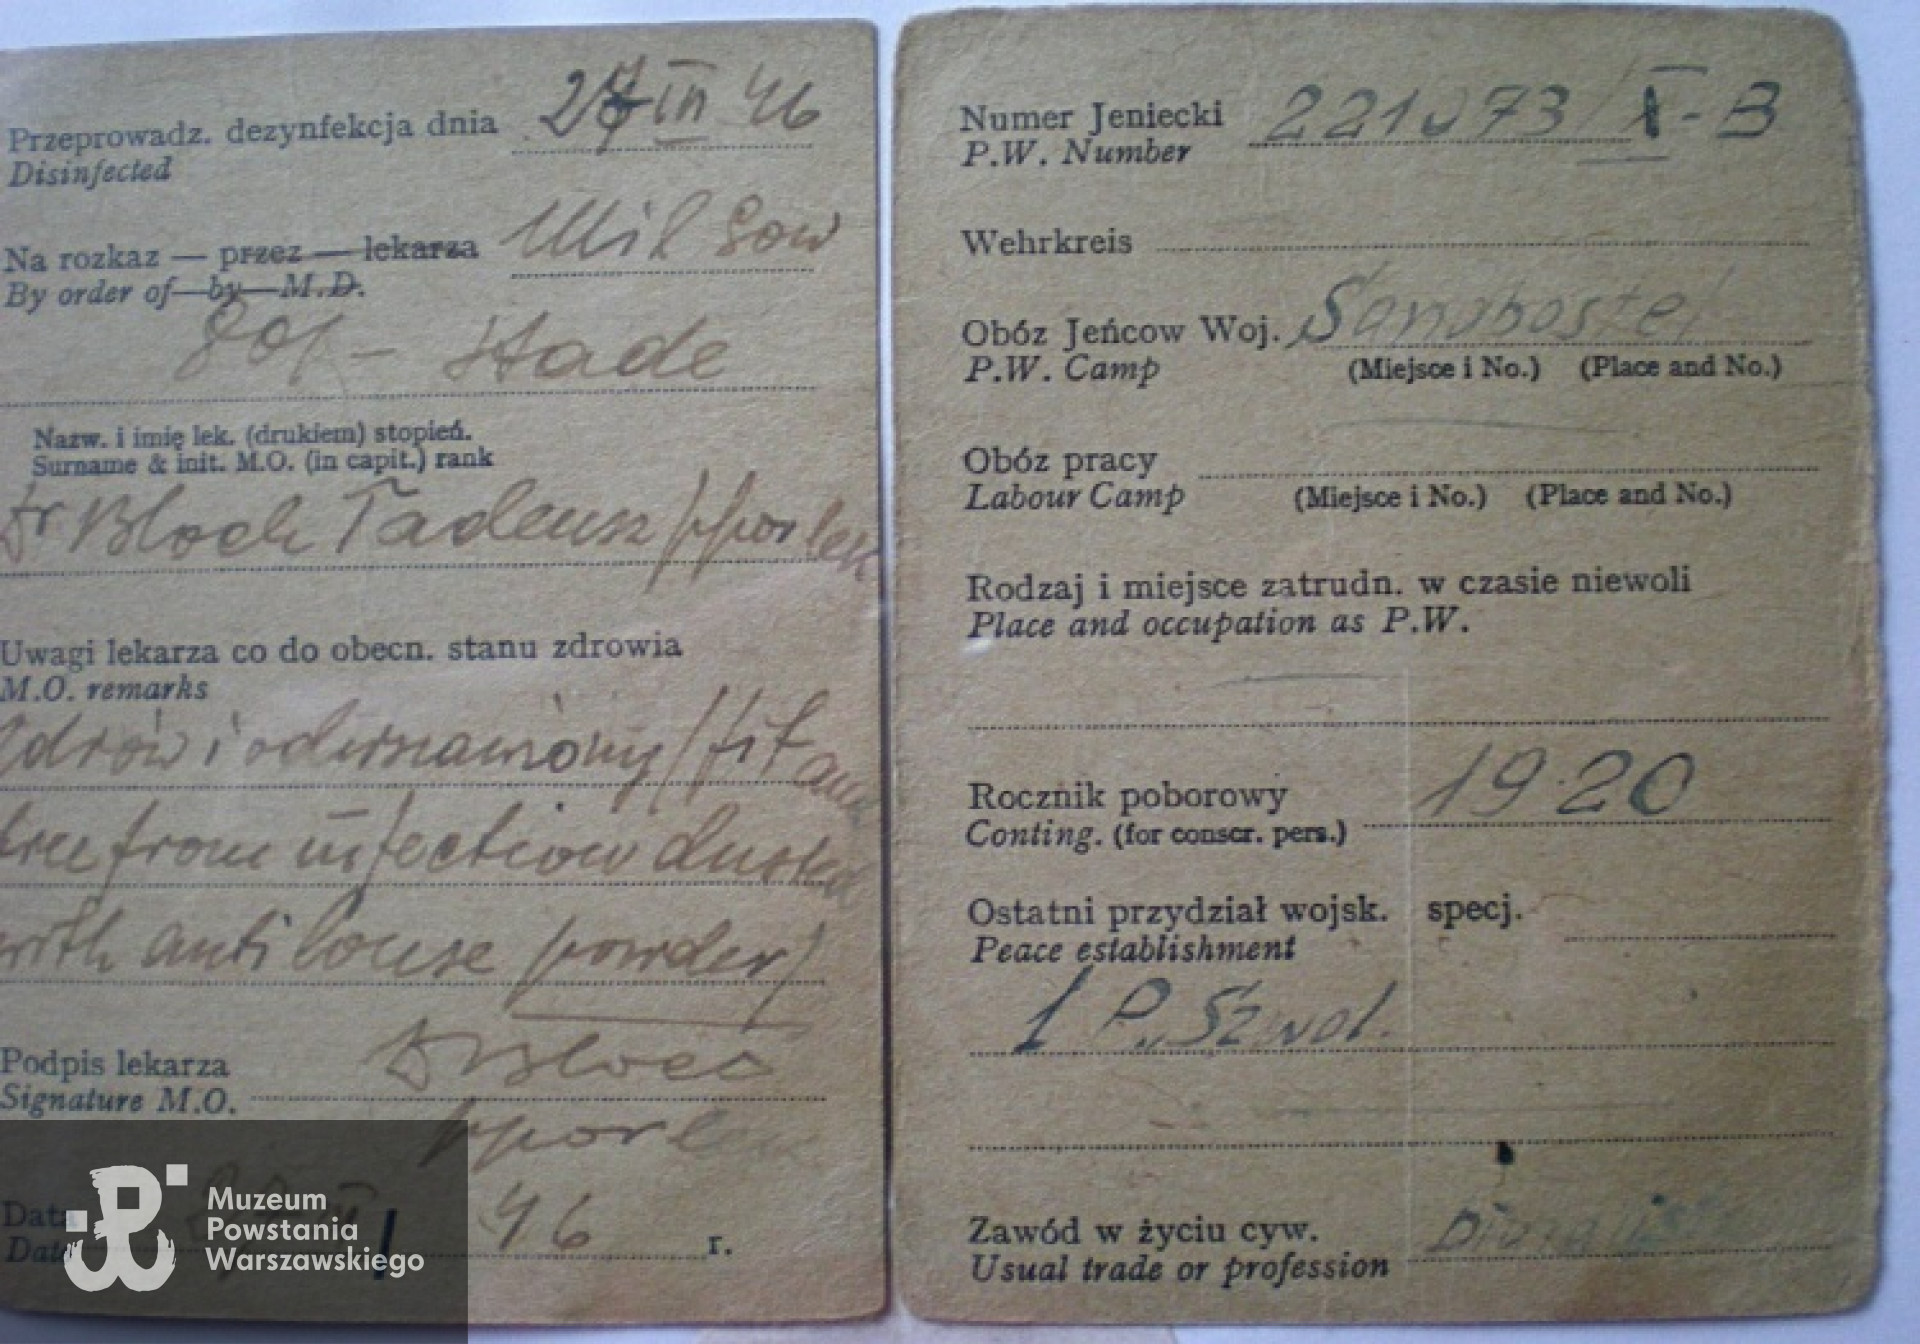 Przeprowadz. dezynfekcja dnia 27 III 46
Disinfected
Na rozkaz — przez — lekarza Mil Gow
By order of—by—M.D.
Stade
Nazw. i imię lek. (drukiem) stopień.
Surname & init. M.O. (in capit.) rank
Dr Bloch Tadeusz ppor lek
Uwagi lekarza co do obecn. stanu zdrowia
M.O. remarks
Zdrów i odwszawiony / fit and
free from infection dusted
with anti louse powder)
Podpis lekarza Dr Bloch
Signature M.O.
ppor lek
Data 46 r.
Date
Muzeum
Powstania
Warszawskiego
Numer Jeniecki 221073/X-B
P.W. Number
Wehrkreis
Obóz Jeńcow Woj. Sandbostel
P.W. Camp (Miejsce i No.) (Place and No.)
Obóz pracy
Labour Camp (Miejsce i No.) (Place and No.)
Rodzaj i miejsce zatrudn. w czasie niewoli
Place and occupation as P.W.
Rocznik poborowy 1920
Conting. (for conscr. pers.)
Ostatni przydział wojsk. specj.
Peace establishment
1 P. Szwol.
Zawód w życiu cyw.
Usual trade or profession